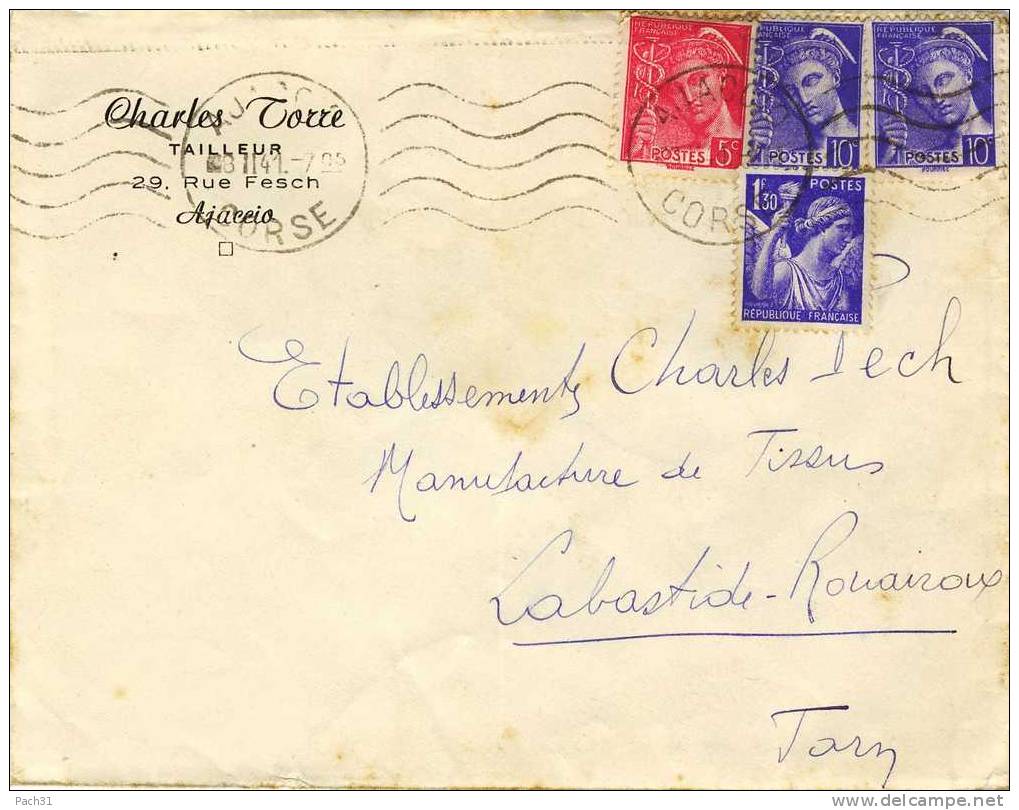 Charles Torre
TAILLEUR
29, Rue Fesch
Ajaccio
AJACCIO
CORSE
RÉPUBLIQUE
FRANÇAISE
POSTES 5c
RÉPUBLIQUE
FRANÇAISE
POSTES 10c
RÉPUBLIQUE
FRANÇAISE
POSTES 10c
AJACCIO
CORSE
1F30 POSTES
RÉPUBLIQUE FRANÇAISE
Etablissements Charles Pech
Manufacture de Tissus
Labastide-Rouairoux
Tarn
Pach31
www.delcampe.net